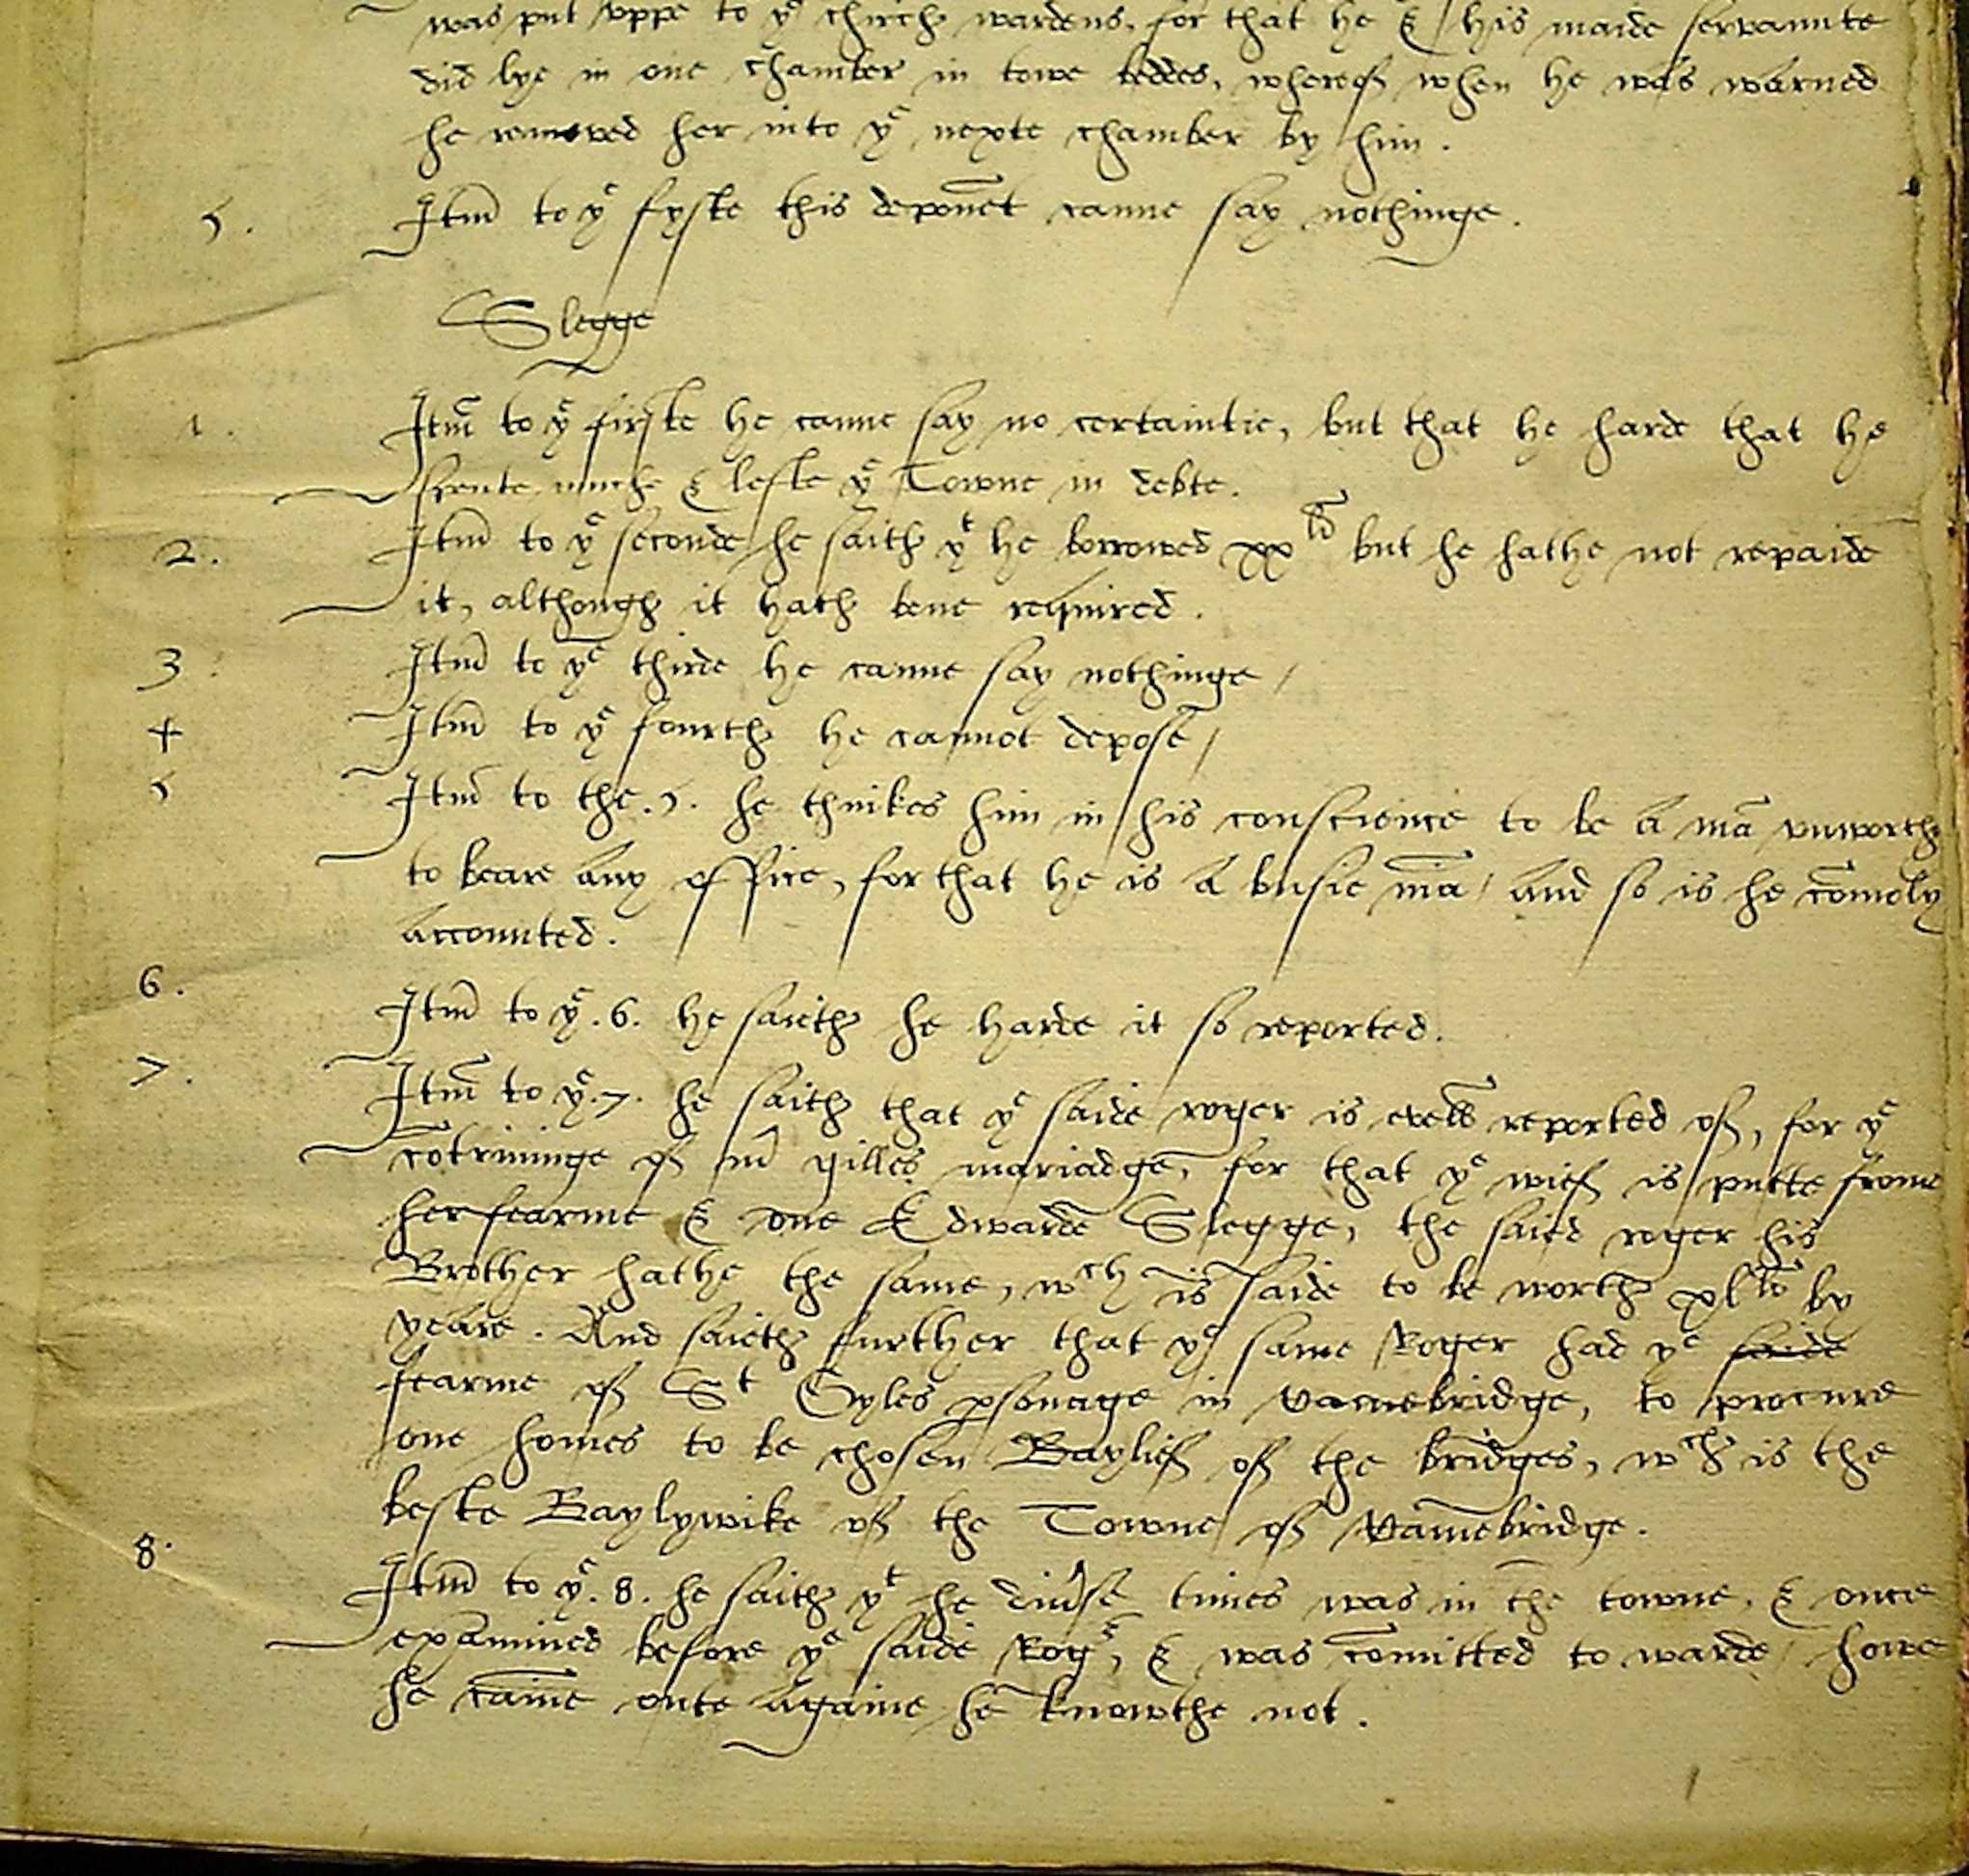 was put vppe to ye chirch wardens, for that he & his maide servannte
did lye in one chamber in towe beddes, whereof when he was warned
he remoeved her into ye nexte chamber by him.
5. Itm̃ to ye fyfte this deponẽt canne say nothinge.
Slegge
1. Itm̃ to ye firste he canne say no certaintie, but that he harde that he
spente muche & lefte ye Towne in debte.
2. Itm̃ to ye seconde he saith yt he borrowed xxli but he hathe not repaide
it, although it hath bene required.
3. Itm̃ to ye thirde he canne say nothinge /
4 Itm̃ to ye fourth he cannot depose /
5 Itm̃ to the .5. he thinkes him in his conscience to be a mã vnworth
to beare any office, for that he is a busie mã / and so is he com̃oly
accounted.
6. Itm̃ to ye .6. he saieth he harde it so reported.
7. Itm̃ to ye .7. he saith that ye saide roger is evell reported of, for ye
cõtrivinge of mr gilles mariadge, for that ye wief is putte frome
her fearme & one Edwarde Slegge, the said roger his
Brother hathe the same, wch is saide to be worth xlli by
yeare. And saieth further that ye same Roger had ye saide
fearme of St Gyles psonage in Camebridge, to procure
one homes to be chosen Baylief of the bridges, wch is the
beste Baylywike of the Towne of Camebridge.
8. Itm̃ to ye .8. he saith yt he diu'se times was in the towne, & once
examined before ye saide Rog', & was com̃itted to warde / howe
he came oute againe he knowthe not.